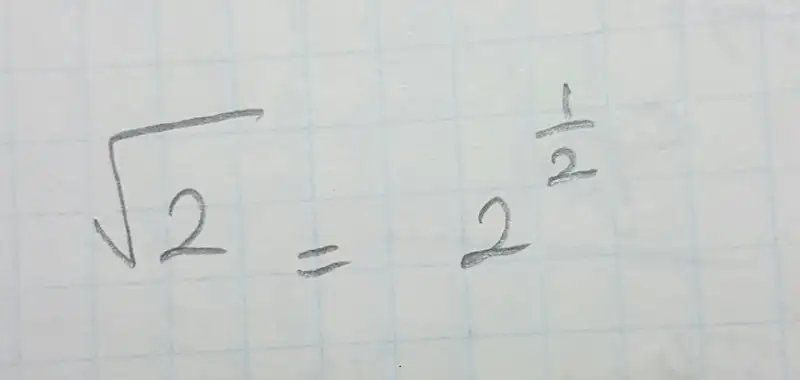 √2 = 2^(1/2)